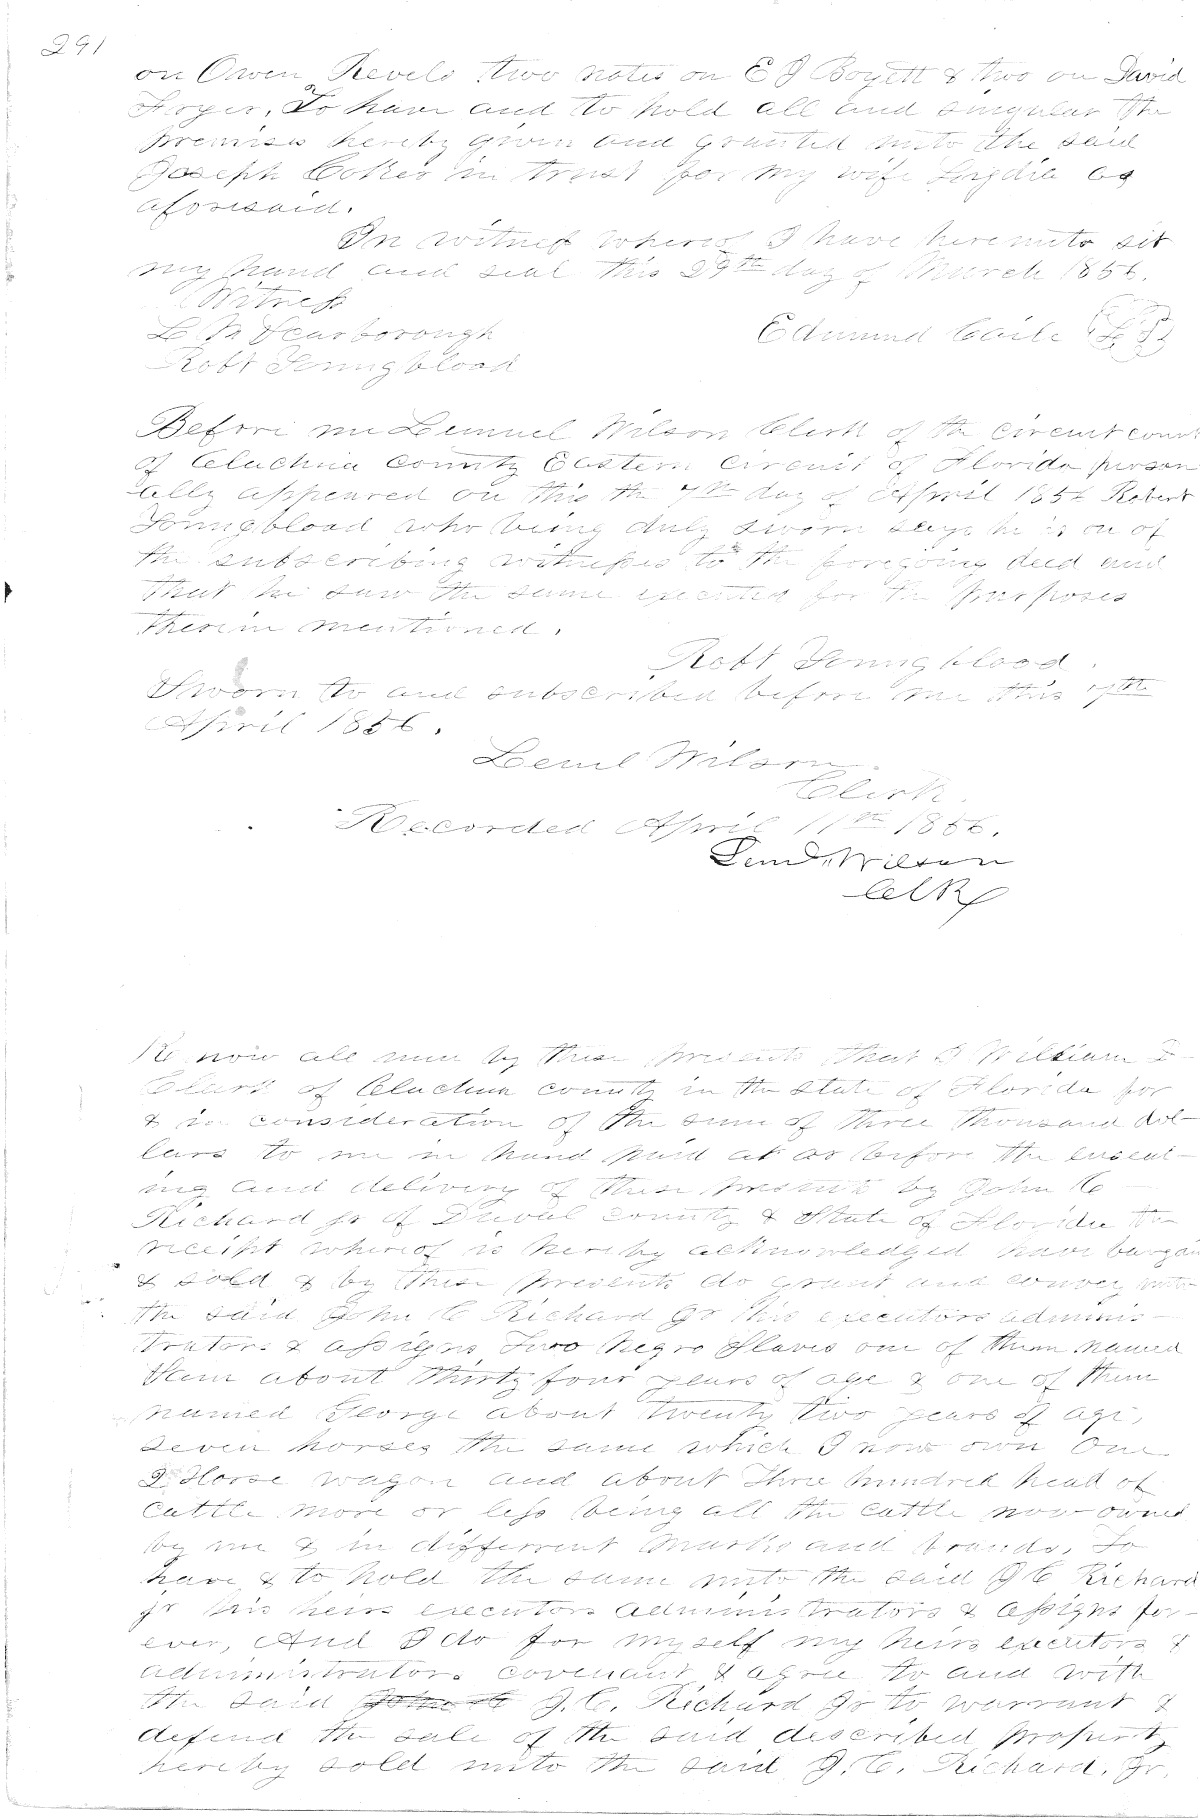 291
on Owen Revels two notes on E J Boyett & two on David
To have and to hold all and singular the
premises hereby given and granted unto the said
Joseph Coker in trust for my wife as
aforesaid.
In witness whereof I have hereunto set
my hand and seal this 29th day of March 1856.
Witness
L M Scarborough
Edmund
Robt Youngblood
Before me Lemuel Wilson Clerk of the circuit court
of Alachua county Eastern circuit of Florida person
ally appeared on this the 7th day of April 1856 Robert
Youngblood who being duly sworn says he is on of
the subscribing witnesses to the foregoing deed and
that he saw the same executed for the purposes
therein mentioned.
Robt Youngblood.
Sworn to and subscribed before me this 7th
April 1856.
Leml Wilson
Clerk.
Recorded April 11th 1856.
Leml Wilson
Clk
Know all men by these presents that I William
Clark of Alachua county in the State of Florida for
& in consideration of the sum of three thousand dol-
lars to me in hand paid at or before the enseal-
ing and delivery of these presents by John C
Richard jr of Duval county & State of Florida the
receipt whereof is hereby acknowledged have bargain
& sold & by these presents do grant and convey unto
the said John C Richard Jr his executors adminis-
trators & assigns Two Negro Slaves one of them named
Sam about thirty four years of age & one of them
named George about twenty two years of age,
seven horses the same which I now own One
2 Horse wagon and about Three hundred head of
cattle more or less being all the cattle now owned
by me & in different marks and brands, To
have & to hold the same unto the said J C Richard
jr his heirs executors administrators & assigns for-
ever, And I do for myself my heirs executors &
administrators covenant & agree to and with
the said John C J.C. Richard Jr to warrant &
defend the sale of the said described property
hereby sold unto the said J.C. Richard. Jr.